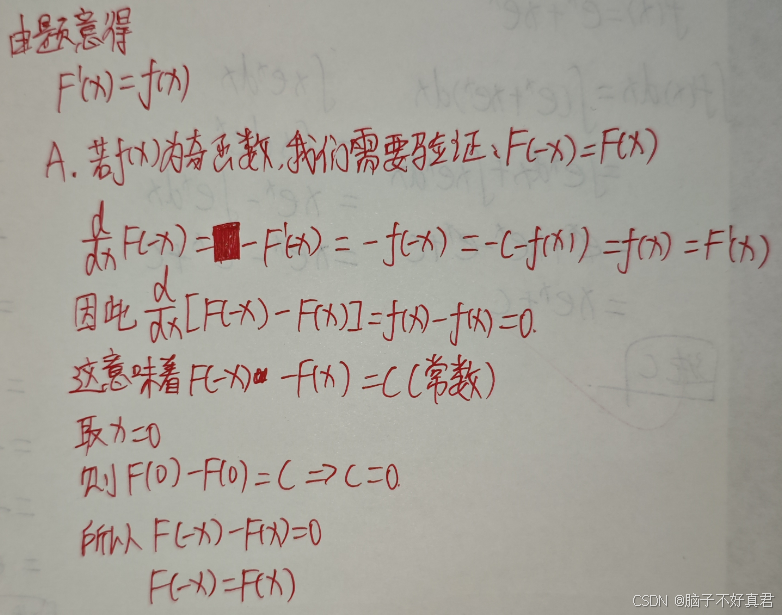 由题意得
F'(x)=f(x)
A. 若f(x)为奇函数,我们需要验证:F(-x)=F(x)
d/dx F(-x)= -F'(-x) = -f(-x) = -(-f(x)) = f(x) = F'(x)
因此 d/dx [F(-x)-F(x)]=f(x)-f(x)=0.
这意味着F(-x) -F(x) = C (常数)
取x=0
则F(0)-F(0)=C ⇒ C=0.
所以 F(-x)-F(x)=0
F(-x)=F(x)
CSDN @脑子不好真君